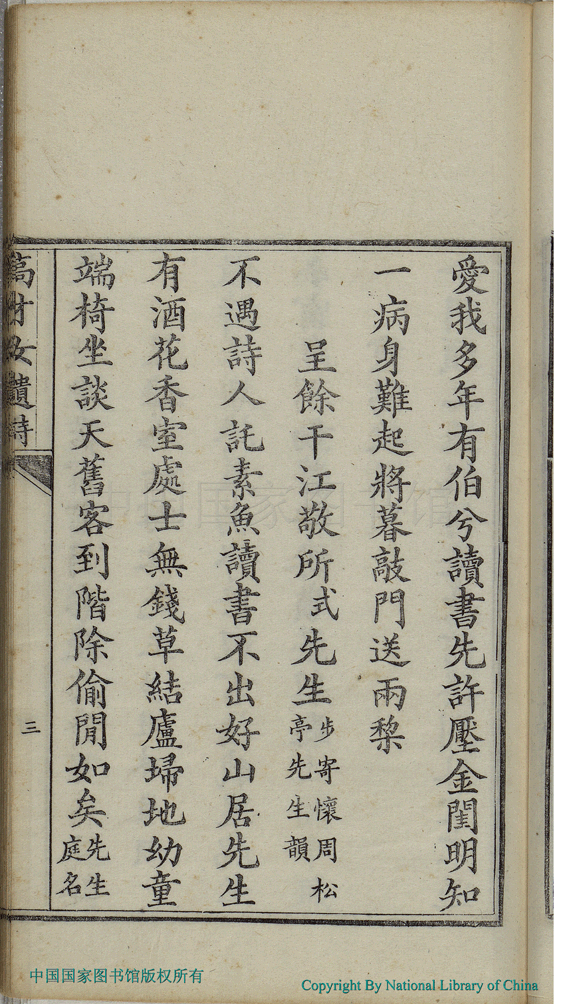 愛我多年有伯兮讀書先許壓金閨明知
一病身難起將暮敲門送兩棃
呈餘干江敬所式先生步寄懷周松亭先生韻
不遇詩人託素魚讀書不出好山居先生
有酒花香室處士無錢草結廬埽地幼童
端椅坐談天舊客到階除偷閒如矣先生庭名
萬才女遺詩
三
中国国家图书馆
中国国家图书馆版权所有
Copyright By National Library of China